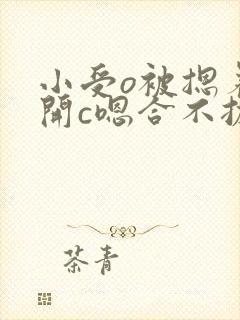 小受o被摁着
開c嗯合不拢
茶青